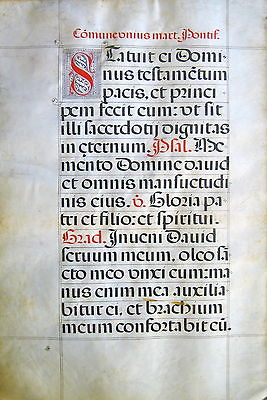 Cõmune unius mart. Pontif.
Statuit ei Domi
nus testamẽtum
pacis, et princi
pem fecit eum: vt sit
illi sacerdotij dignitas
in eternum. Psal. Me
mento Domine david
et omnis mansuetudi
nis eius. ℣. Gloria pa
tri et filio: et spiritui.
Grad. Inueni David
seruum meum, oleo sã
cto meo vnxi eum: ma
nus enim mea auxilia
bitur ei, et brachium
meum confortabit eũ.